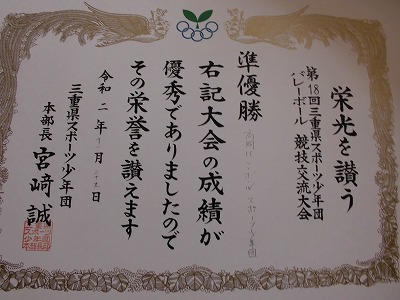 栄光を讃う
第18回三重県スポーツ少年団
バレーボール 競技交流大会
準優勝
スポーツ少年団
右記大会の成績が
優秀でありましたので
その栄誉を讃えます
令和二年十一月 日
三重県スポーツ少年団
本部長 宮﨑 誠